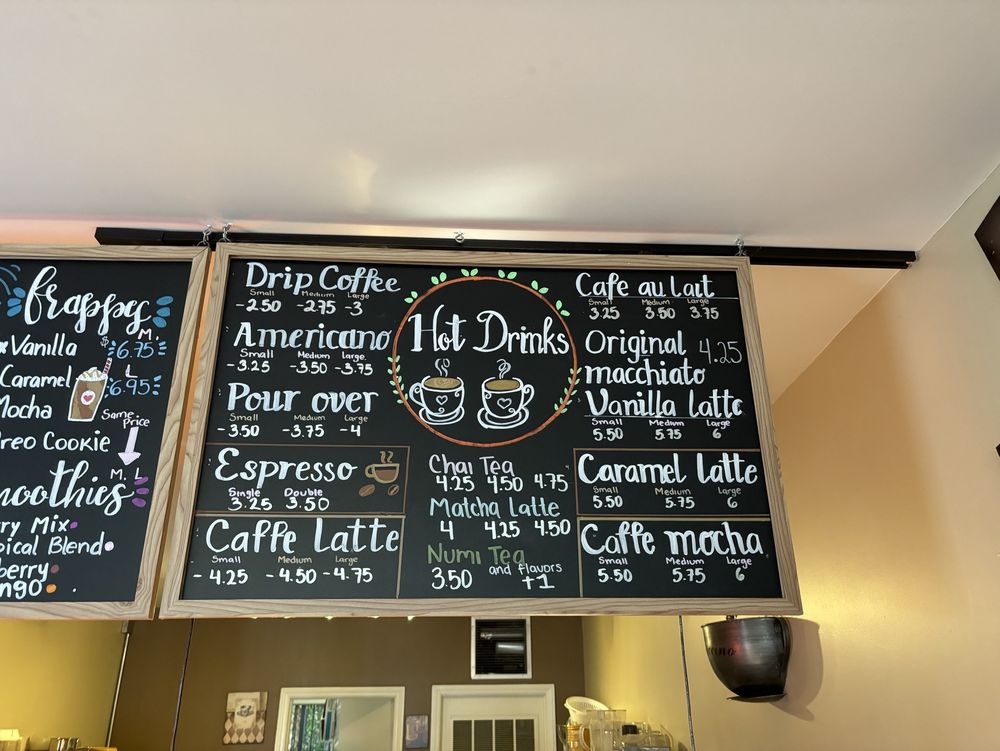 frappes
M.
$6.75
Vanilla
Caramel
L
6.95
Mocha
Same price
Oreo Cookie
M. L
Smoothies
Drip Coffee
Small Medium Large
-2.50 -2.75 -3
Americano
Small Medium Large
-3.25 -3.50 -3.75
Pour over
Small Medium Large
-3.50 -3.75 -4
Espresso
Single Double
3.25 3.50
Caffe Latte
Small Medium Large
-4.25 -4.50 -4.75
Hot Drinks
Chai Tea
4.25 4.50 4.75
Matcha Latte
4 4.25 4.50
Numi Tea
3.50 and flavors
+1
Cafe au lait
Small Medium Large
3.25 3.50 3.75
Original 4.25
macchiato
Vanilla latte
Small Medium Large
5.50 5.75 6
Caramel latte
Small Medium Large
5.50 5.75 6
Caffe mocha
Small Medium Large
5.50 5.75 6